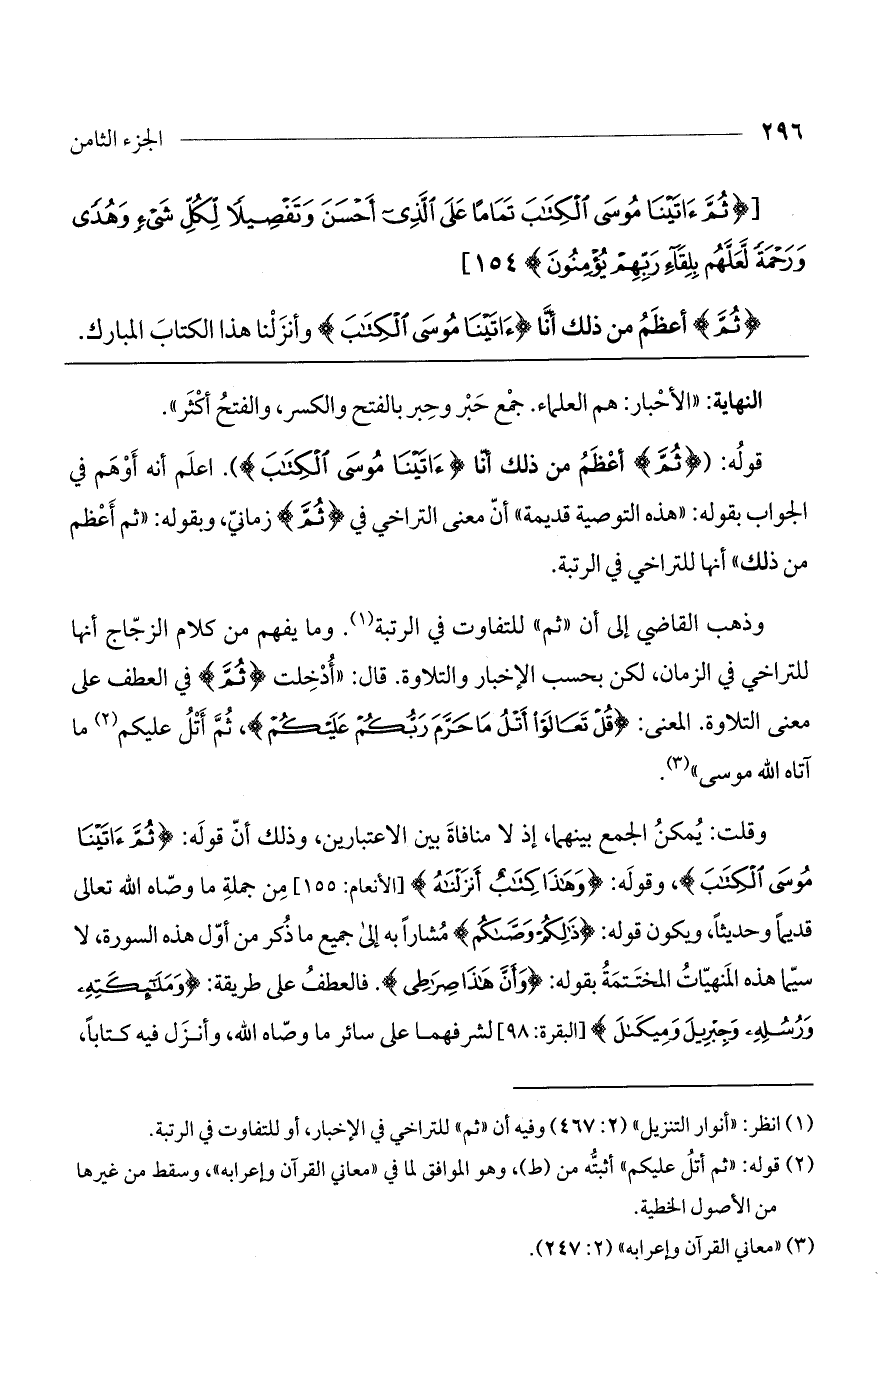 ٢٩٦ الجزء الثامن
[﴿ثُمَّ ءَاتَيْنَا مُوسَى ٱلْكِتَٰبَ تَمَامًا عَلَى ٱلَّذِىٓ أَحْسَنَ وَتَفْصِيلًا لِّكُلِّ شَىْءٍ وَهُدًى
وَرَحْمَةً لَّعَلَّهُم بِلِقَآءِ رَبِّهِمْ يُؤْمِنُونَ﴾ ١٥٤]
﴿ثُمَّ﴾ أعظَمُ من ذلك أنَّا ﴿ءَاتَيْنَا مُوسَى ٱلْكِتَٰبَ﴾ وأنزَلْنا هذا الكتابَ المبارك.
النهاية: «الأحْبار: هم العلماء. جمْع حَبْر وحِبر بالفتح والكسر، والفتحُ أكْثَر».
قولُه: (﴿ثُمَّ﴾ أعْظَمُ من ذلك أنّا ﴿ءَاتَيْنَا مُوسَى ٱلْكِتَٰبَ﴾). اعلَم أنه أوْهَم في
الجواب بقوله: «هذه التوصية قديمة» أنّ معنى التراخي في ﴿ثُمَّ﴾ زمانيّ، وبقوله: «ثم أَعْظم
من ذلك» أنها للتراخي في الرتبة.
وذهب القاضي إلى أن «ثم» للتفاوت في الرتبة(١). وما يفهم من كلام الزجّاج أنها
للتراخي في الزمان، لكن بحسب الإخبار والتلاوة. قال: «أُدْخِلت ﴿ثُمَّ﴾ في العطف على
معنى التلاوة. المعنى: ﴿قُلْ تَعَالَوْا۟ أَتْلُ مَا حَرَّمَ رَبُّكُمْ عَلَيْكُمْ﴾، ثُمَّ أَتْلُ عليكم(٢) ما
آتاه الله موسى»(٣).
وقلت: يُمكنُ الجمع بينهما، إذ لا منافاةَ بين الاعتبارين، وذلك أنّ قولَه: ﴿ثُمَّ ءَاتَيْنَا
مُوسَى ٱلْكِتَٰبَ﴾، وقولَه: ﴿وَهَٰذَا كِتَٰبٌ أَنزَلْنَٰهُ﴾ [الأنعام: ١٥٥] مِن جملةِ ما وصّاه الله تعالى
قديماً وحديثاً، ويكون قوله: ﴿ذَٰلِكُمْ وَصَّىٰكُم﴾ مُشاراً به إلىٰ جميع ما ذُكر من أوّل هذه السورة، لا
سيّما هذه المَنهيّاتُ المختَتمَةُ بقوله: ﴿وَأَنَّ هَٰذَا صِرَٰطِى﴾. فالعطفُ على طريقة: ﴿وَمَلَٰٓئِكَتِهِۦ
وَرُسُلِهِۦ وَجِبْرِيلَ وَمِيكَىٰلَ﴾ [البقرة: ٩٨] لشرفهما على سائر ما وصّاه الله، وأنزَل فيه كتاباً،
(١) انظر: «أنوار التنزيل» (٢: ٤٦٧) وفيه أن «ثم» للتراخي في الإخبار، أو للتفاوت في الرتبة.
(٢) قوله: «ثم أتلُ عليكم» أثبتُّه من (ط)، وهو الموافق لما في «معاني القرآن وإعرابه»، وسقط من غيرها
من الأصول الخطية.
(٣) «معاني القرآن وإعرابه» (٢: ٢٤٧).